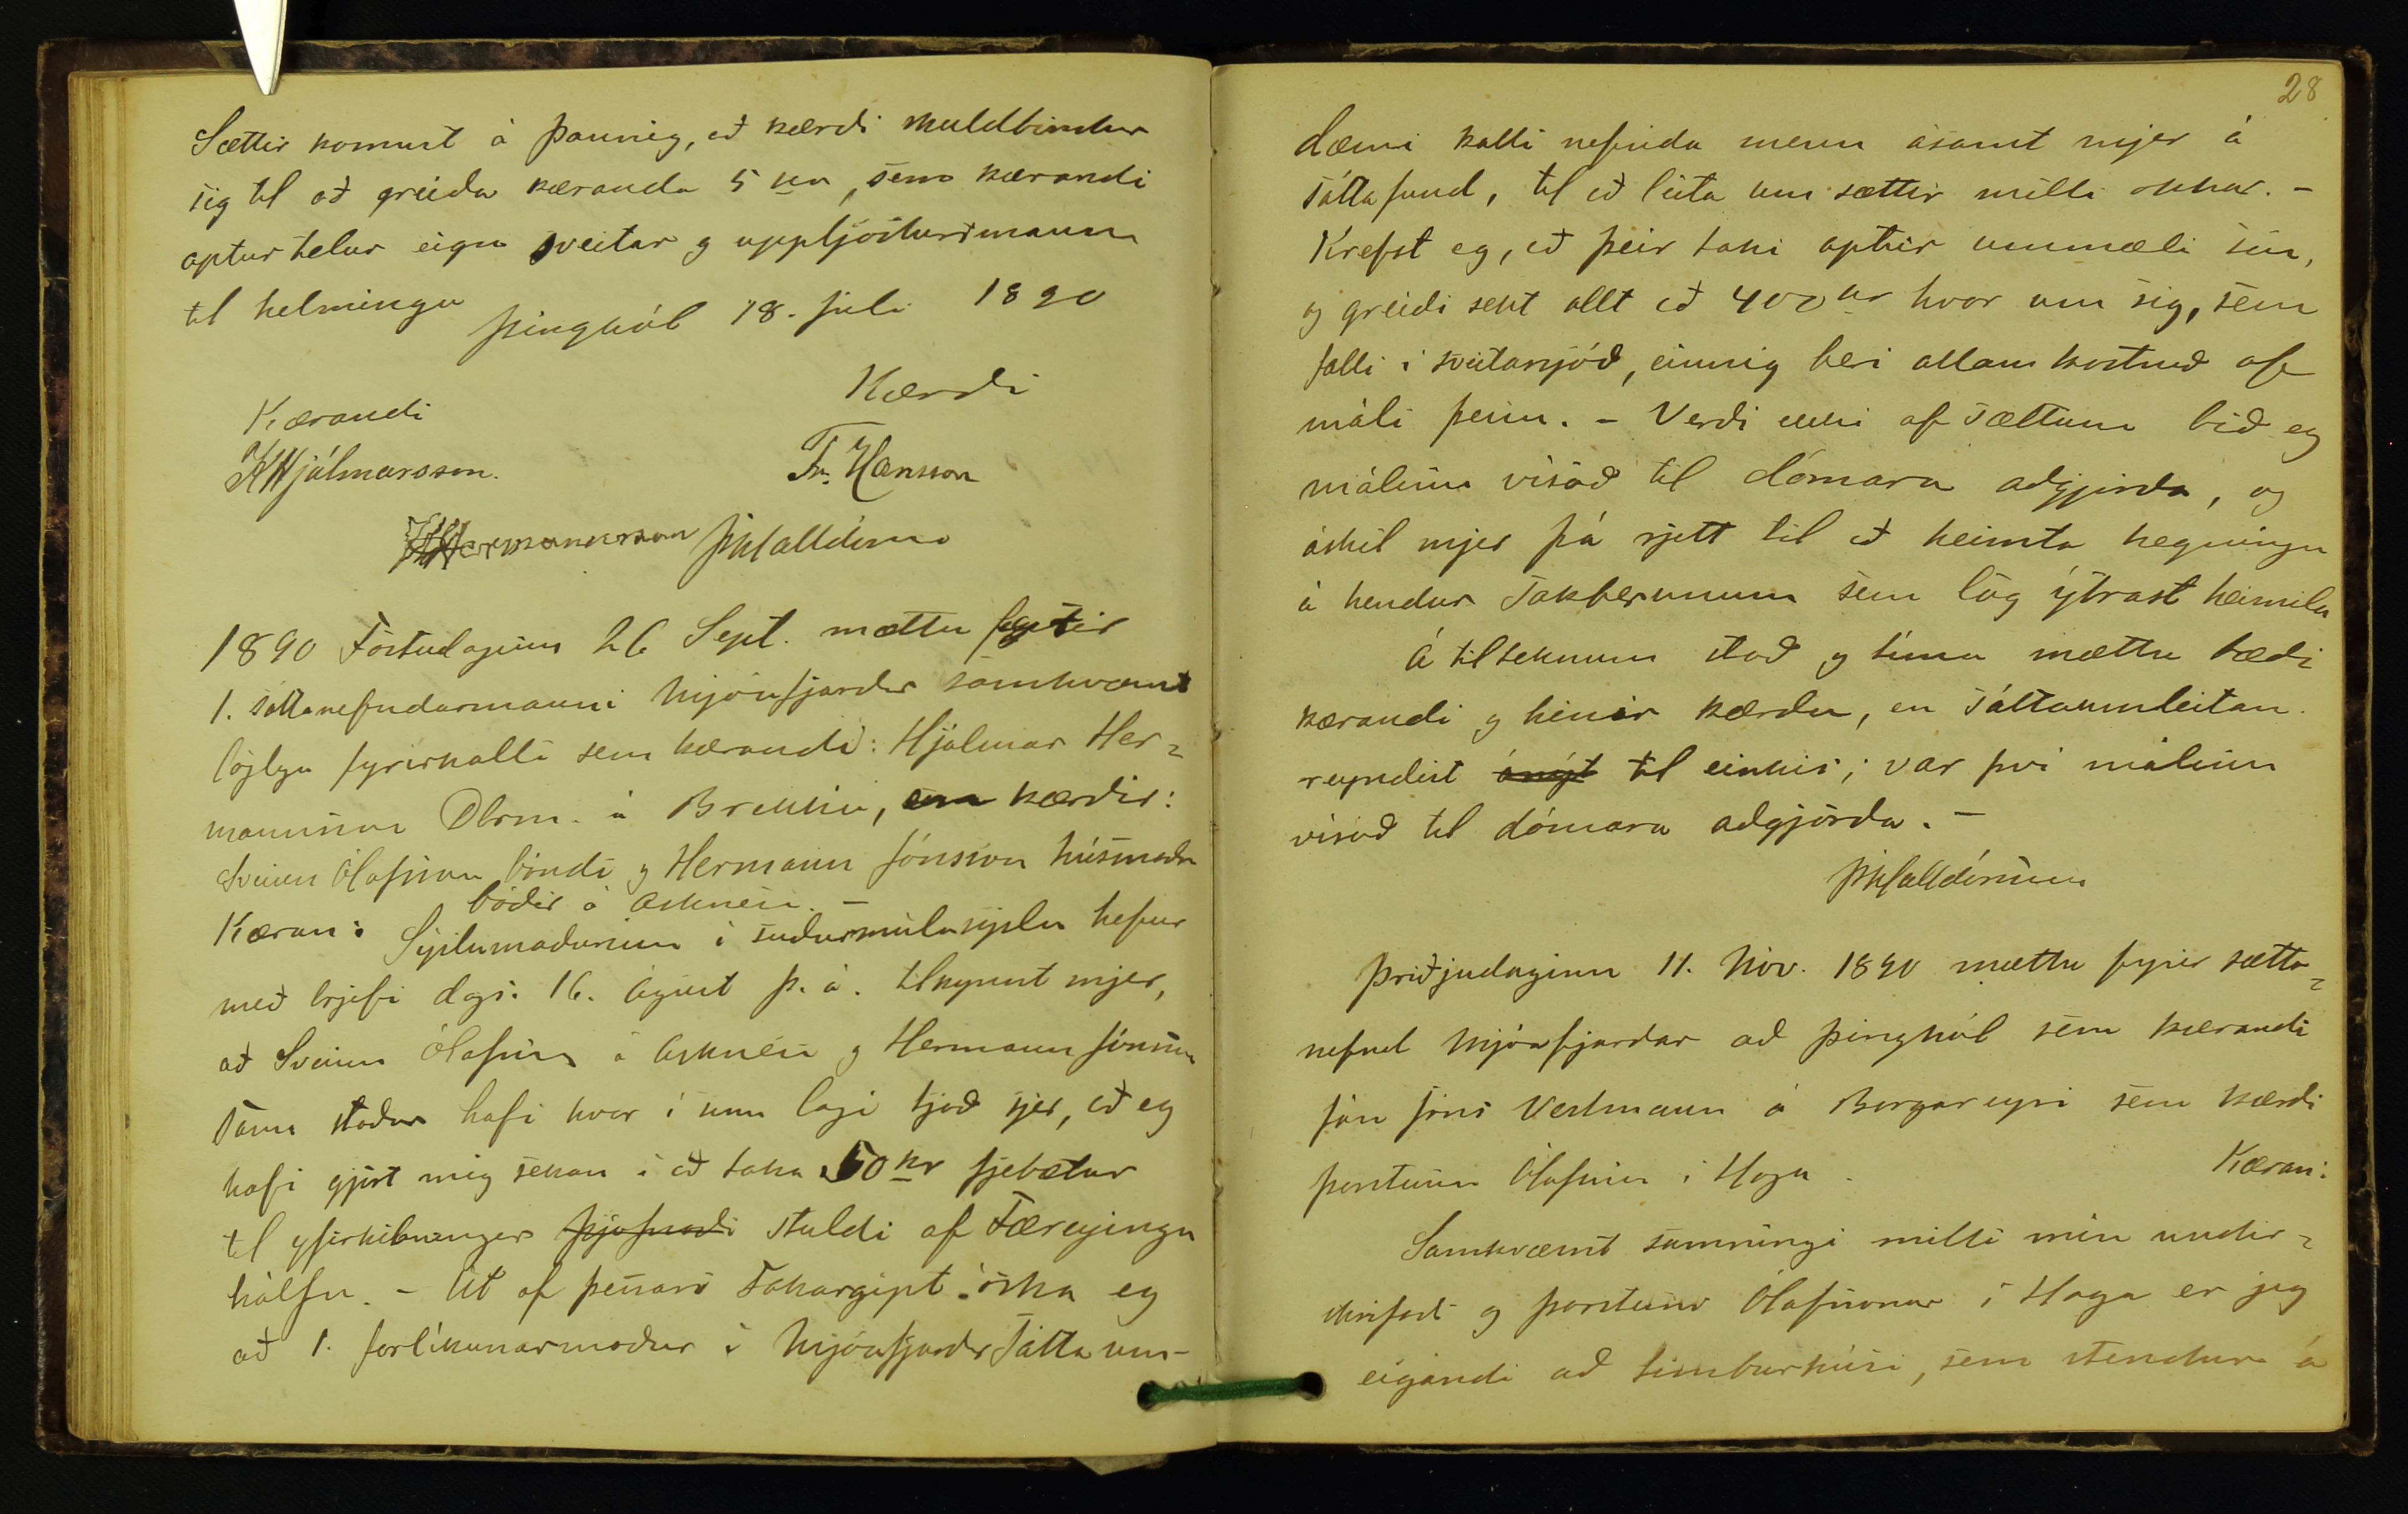 Sættir komust á þannig, að kærði skuldbindur
sig til að greiða kæranda 5 kr, sem kærandi
aptur telur eign sveitar og uppljósturs manns
til helminga
Þinghól 18. júlí 1890
Kærandi
Kærði
KHjálmarsson.
Fr. Hansson
HHermannsson ÞKHalldórsson
1890 Föstudaginn 26 Sept. mættu fyrir
1. sáttanefndarmanni Mjóafjarðar samkvæmt
löglegu fyrirkalli sem kærandi: Hjálmar Her-
mannsson Dbrm. á Brekku, sem kærðir:
Sveinn Ólafsson bóndi og Hermann Jónsson húsmaðr
báðir á Asknesi. -
Kæran: Sýslumaðurinn í suðurmúlasýslu hefur
með brjefi dags. 16. Ágúst þ. á. tilkynnt mjer,
að Sveinn Ólafsson á Asknesi og Hermann Jónsson
sama staðar hafi hvor í sínu lagi tjáð sjer, að eg
hafi gjört mig sekan í að taka 50 kr fjebætur
til yfirhilmingar þjófnaði stuldi af Færeyinga
hálfu. - Út af þessari sakargipt óska eg
að 1. forlíkunarmaður í Mjóafjarðr sátta um-
28
dæmi kalli nefnda menn ásamt mjer á
sáttafund, til að leita um sættir milli okkar. -
Krefst eg, að þeir taki aptur ummæli sín,
og greiði sekt allt að 400 kr hvor um sig, sem
falli í sveitarsjóð, einnig beri allan kostnað af
máli þessu. - Verði ekki af sættum bið eg
málinu vísað til dómara aðgjörða, og
áskil mjer þá rjett til að heimta hegningu
á hendur sakberunum sem lög ýtrast heimila
Á tilteknum stað og tíma mættu bæði
kærandi og hinir kærðu, en sáttaumleitan
reyndist ónýt til einkis; var því málinu
vísað til dómara aðgjörða. -
ÞKHalldórsson
Þriðjudaginn 11. Nóv. 1890 mættu fyrir sætta-
nefnd Mjóafjarðar að Þinghól sem kærandi
Jón Jóns Vestmann á Borgareyri sem kærði
Þorsteinn Ólafsson í Haga.
Kæran:
Samkvæmt samningi milli mín undir-
skrifaðs og Þorsteins Ólafssonar í Haga er jeg
eigandi að timburhúsi, sem stendur á